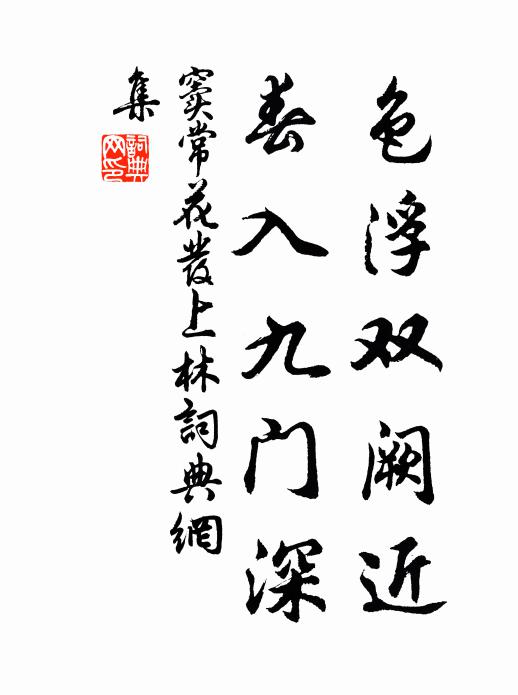 色浮双阙近
春入九门深
窦常花發上林詞典網
集
詞典
网印